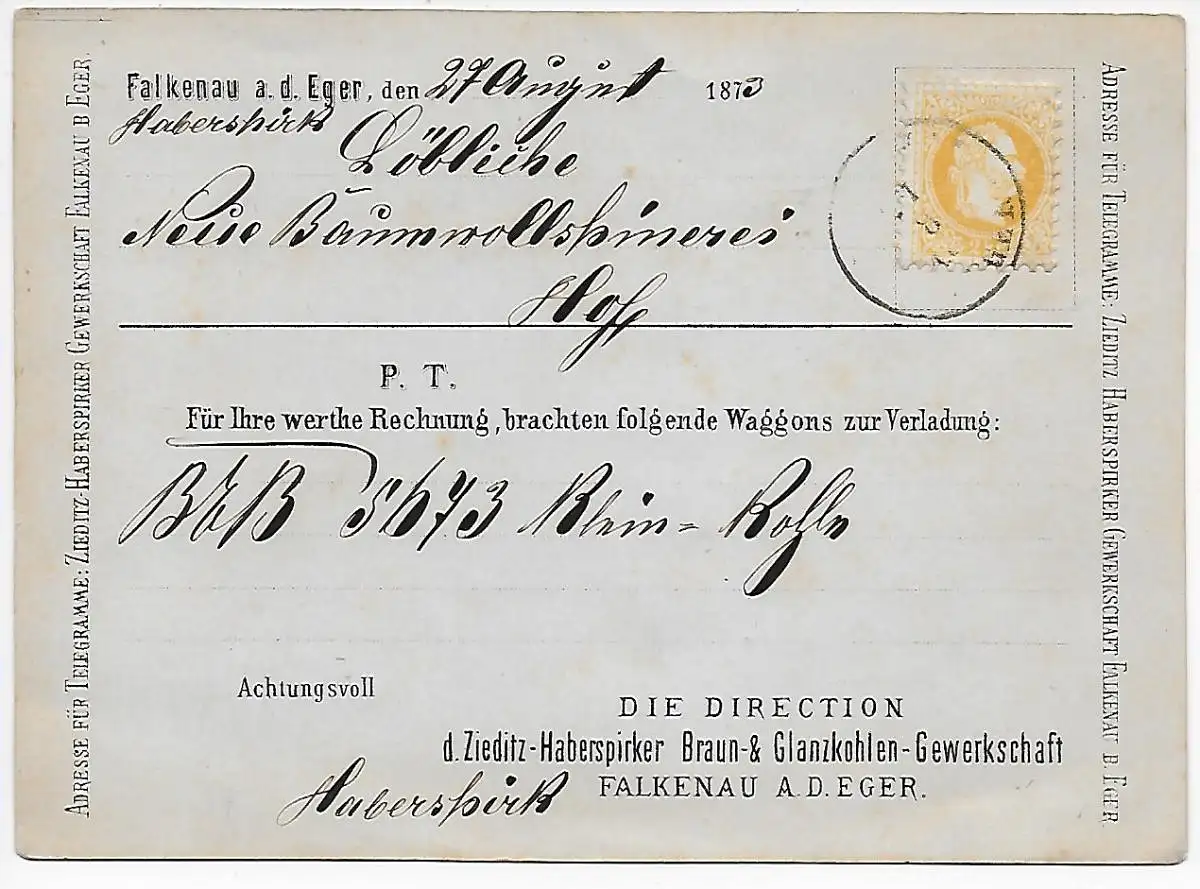 Falkenau a. d. Eger, den 27 August 1873
Haberspirk
Löbliche
Neue Baumwollspinerei
Hof
P. T.
Für Ihre werthe Rechnung, brachten folgende Waggons zur Verladung:
BEB 5673 Klein-Kohle
Achtungsvoll
DIE DIRECTION
d. Zieditz-Haberspirker Braun-& Glanzkohlen-Gewerkschaft
FALKENAU A.D. EGER.
Haberspirk
ADRESSE FÜR TELEGRAMME: ZIEDITZ-HABERSPIRKER GEWERKSCHAFT FALKENAU B EGER.
ADRESSE FÜR TELEGRAMME: ZIEDITZ HABERSPIRKER GEWERKSCHAFT FALKENAU B. EGER.